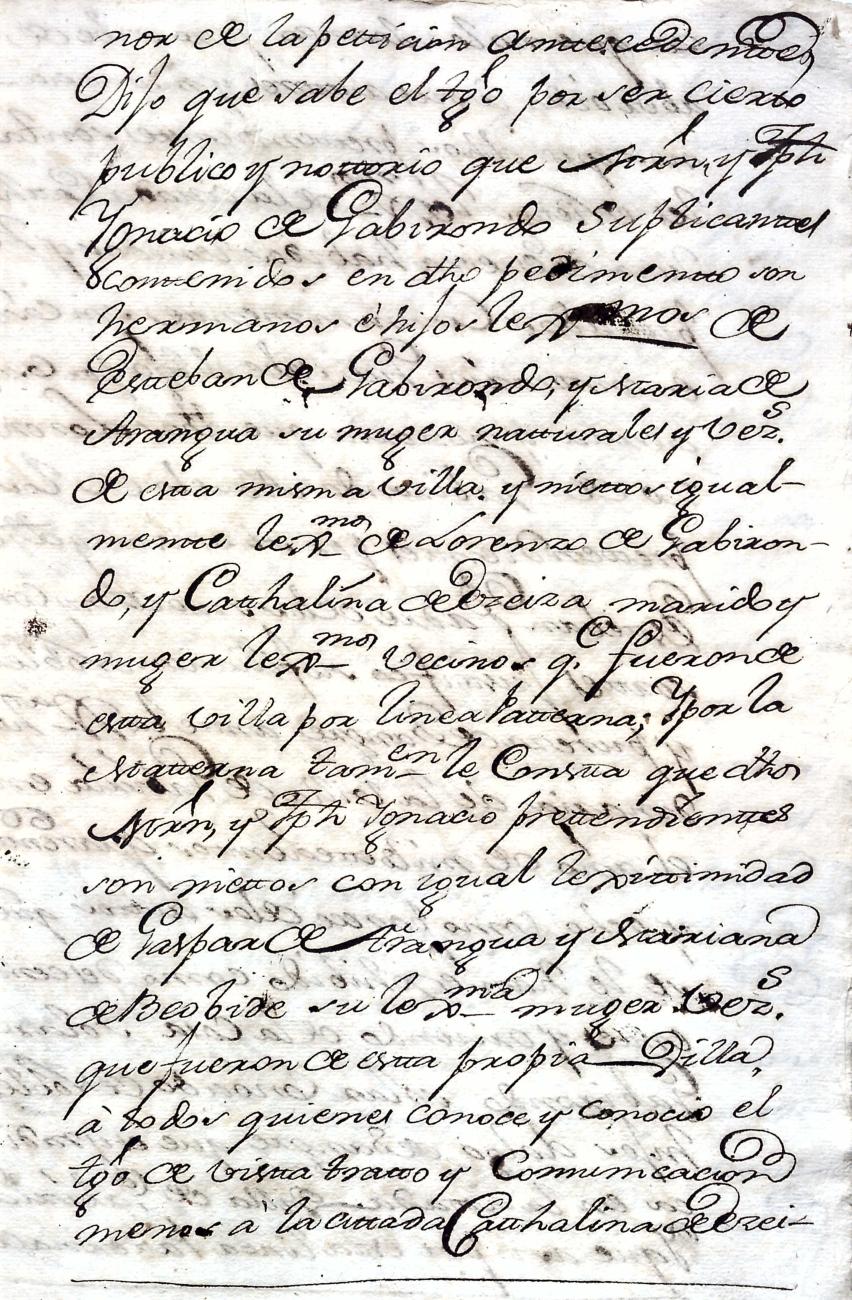 nor de la petticion anttecedentte,
Dijo que save el tgo por ser cierto
publico y nottorio que Mrn, y Jph
Ygnacio de Gabirondo Suplicanttes
conttenidos en dho pedimentto son
hermanos è hijos lexmos de
Estteban de Gabirondo, y Maria de
Arangua su muger natturales y Vezs.
de estta misma villa. y niettos igual-
mentte lexmos de Lorenzo de Gabiron-
do, y Catthalina de Odriozola marido y
muger lexmos vecinos q.e fueron de
estta villa por linea Patterna; Y por la
Matterna tamen le Constta que dhos
Mrn, y Jph Ygnacio prettendienttes
son niettos con igual lexittimidad
de Gaspar de Arangua y Mariana
de Beobide su lexma muger Vezs.
que fueron de estta propia Villa,
à todos quienes conoce y conocio el
tgo de vistta tratto y Comunicacion
menos à la cittada Catthalina de